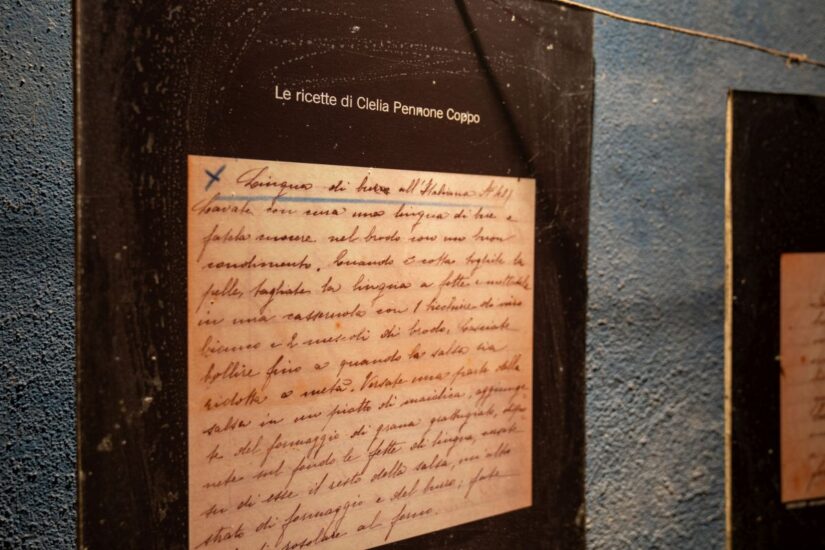 Le ricette di Clelia Pennone Coppo
X Lingua di bue all'Italiana N 487
Lavate con cura una lingua di bue e
fatela cuocere nel brodo con un buon
condimento. Quando è cotta togliete la
pelle, tagliate la lingua a fette e mettetele
in una casseruola con 1 bicchiere di vino
bianco e 2 mescoli di brodo. Lasciate
bollire fino a quando la salsa sia
ridotta a metà. Versate una parte della
salsa in un piatto di maiolica, aggiunge
te del formaggio di grana grattugiato, dispo
nete sul fondo le fette di lingua, versate
su di esse il resto della salsa, un'altro
strato di formaggio e del burro; fate
rosolare al forno.